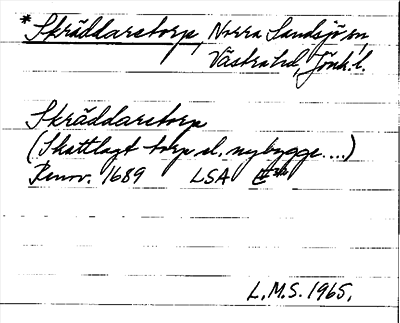 *Skräddaretorp, Norra Sandsjö sn
Västra hd, Jönk. l.
Skräddaretorp
(Skattlagt torp el. nybygge....)
Renov. 1689 LSA
L.M.S. 1965.